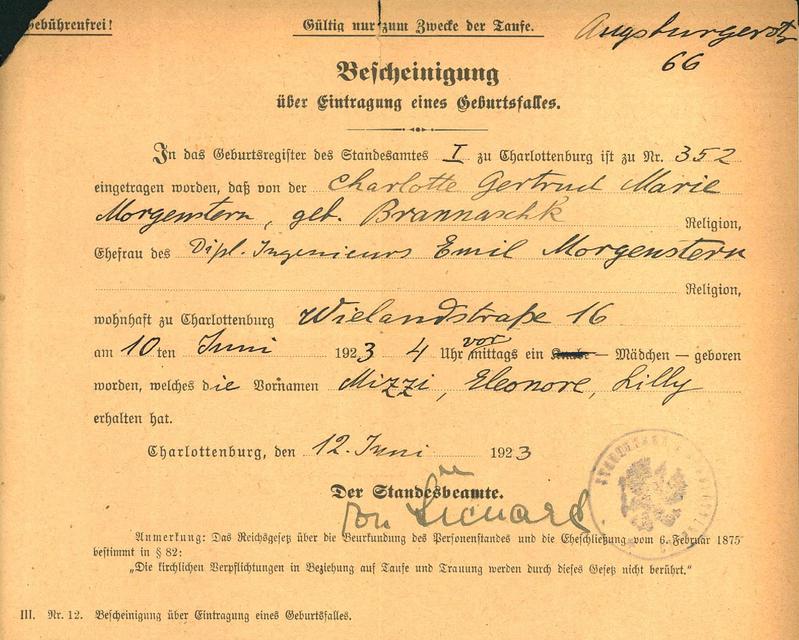 Gebührenfrei!
Gültig nur zum Zwecke der Taufe.
Augsburgerstr
66
Bescheinigung
über Eintragung eines Geburtsfalles.
In das Geburtsregister des Standesamtes I zu Charlottenburg ist zu Nr. 352
eingetragen worden, daß von der Charlotte Gertrud Marie
Morgenstern, geb. Brannaschk Religion,
Ehefrau des Dipl. Ingenieurs Emil Morgenstern
Religion,
wohnhaft zu Charlottenburg Wielandstraße 16
am 10ten Juni 1923 4 Uhr vormittags ein Knabe — Mädchen — geboren
worden, welches die Vornamen Mizzi, Eleonore, Lilly
erhalten hat.
Charlottenburg, den 12. Juni 1923
Der Standesbeamte.
von
Anmerkung: Das Reichsgesetz über die Beurkundung des Personenstandes und die Eheschließung vom 6. Februar 1875
bestimmt in § 82:
„Die kirchlichen Verpflichtungen in Beziehung auf Taufe und Trauung werden durch dieses Gesetz nicht berührt."
III. Nr. 12. Bescheinigung über Eintragung eines Geburtsfalles.